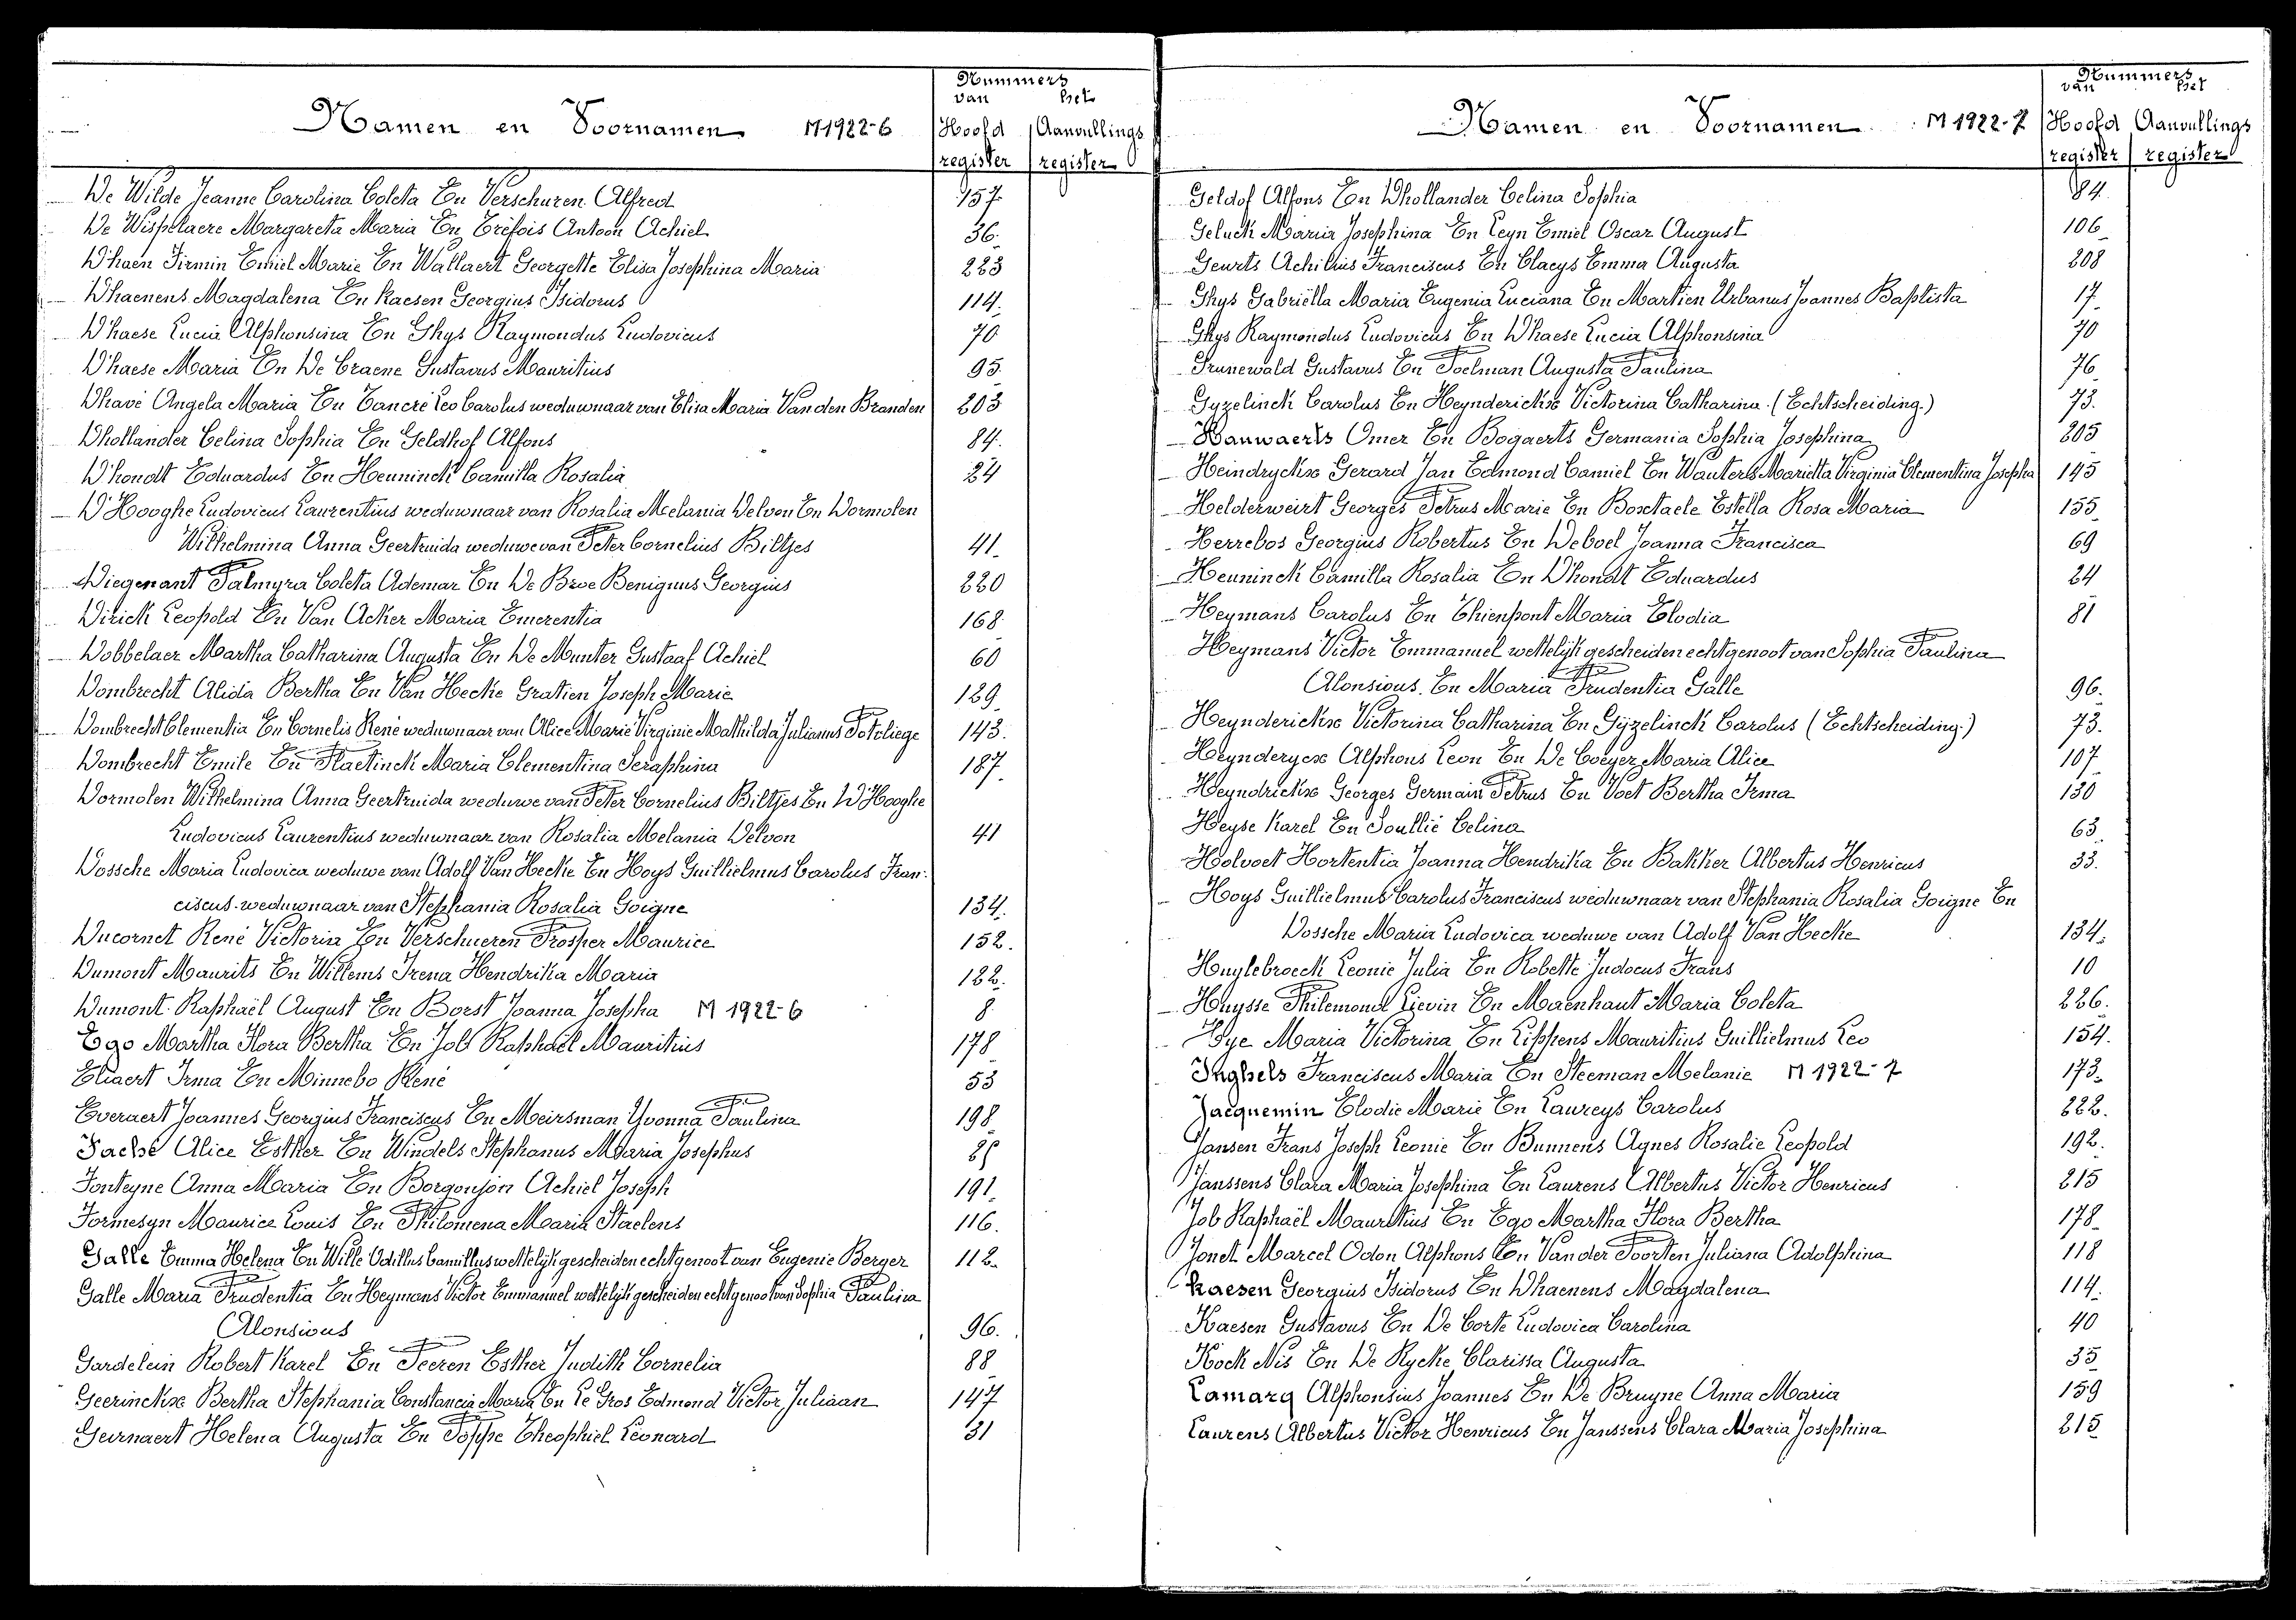 Nummers
van het
Namen en Voornamen M 1922-6 Hoofd Aanvullings
register register
De Wilde Jeanne Carolina Coleta En Verschuren Alfred 157
De Wispelaere Margareta Maria En Tréfois Antoon Achiel 36.
D'haen Firmin Emiel Marie En Wallaert Georgette Elisa Josephina Maria 223
D'haenens Magdalena En Kaesen Georgius Isidorus 114.
D'haese Lucia Alphonsina En Ghys Raymondus Ludovicus 70
D'haese Maria En De Craene Gustavus Mauritius 95.
Dhavé Angela Maria En Tancré Leo Carolus weduwnaar van Elisa Maria Van den Branden 203
Dhollander Celina Sophia En Geldhof Alfons 84.
D'hondt Eduardus En Heuninck Camilla Rosalia 24
D'Hooghe Ludovicus Laurentius weduwnaar van Rosalia Melania Delvon En Dormolen
Wilhelmina Anna Geertruida weduwe van Peter Cornelius Biltjes 41
Diegenant Palmyra Coleta Ademar En De Broe Benignus Georgius 220
Dirick Leopold En Van Acker Maria Emerentia 168.
Dobbelaer Martha Catharina Augusta En De Munter Gustaaf Achiel 60
Dombrecht Alida Bertha En Van Hecke Gratien Joseph Marie 129
Dombrecht Clementia En Cornelis René weduwnaar van Alice Marie Virginie Mathilda Julianus Potvliege 143.
Dombrecht Emile En Plaetinck Maria Clementina Seraphina 187
Dormolen Wilhelmina Anna Geertruida weduwe van Peter Cornelius Biltjes En D'Hooghe
Ludovicus Laurentius weduwnaar van Rosalia Melania Delvon 41
Dossche Maria Ludovica weduwe van Adolf Van Hecke En Hoys Guillielmus Carolus Fran-
ciscus weduwnaar van Stephania Rosalia Goigne 134.
Ducornet René Victorin En Verschueren Prosper Maurice 152.
Dumont Maurits En Willems Irena Hendrika Maria 122.
Dumont Raphaël August En Borst Joanna Josepha M 1922-6 8
Ego Martha Flora Bertha En Job Raphaël Mauritius 178
Eliaert Irma En Minnebo René 53
Everaert Joannes Georgius Franciscus En Meirsman Yvonna Paulina 198
Faché Alice Esther En Windels Stephanus Maria Josephus 25
Fonteyne Anna Maria En Borgonjon Achiel Joseph 191
Formesyn Maurice Louis En Philomena Maria Staelens 116.
Galle Emma Helena En Wille Odillus Camillus wettelijk gescheiden echtgenoot van Eugenie Berger 112.
Galle Maria Prudentia En Heymans Victor Emmanuel wettelijk gescheiden echtgenoot van Sophia Paulina
Alonsious 96.
Gardelein Robert Karel En Peeren Esther Judith Cornelia 88
Geerinckx Bertha Stephania Constancia Maria En Le Gros Edmond Victor Juliaan 147
Geirnaert Helena Augusta En Poppe Theophiel Leonard 31
Nummers
van het
Namen en Voornamen M 1922-7 Hoofd Aanvullings
register register
Geldof Alfons En Dhollander Celina Sophia 84.
Geluck Maria Josephina En Leyn Emiel Oscar August 106
Geurts Achillus Franciscus En Claeys Emma Augusta 208
Ghys Gabriëlla Maria Eugenia Luciana En Martien Urbanus Joannes Baptista 17
Ghys Raymondus Ludovicus En D'haese Lucia Alphonsina 70
Grunewald Gustavus En Poelman Augusta Paulina 76
Gyzelinck Carolus En Heynderickx Victorina Catharina (Echtscheiding.) 73.
Hanwaerts Omer En Bogaerts Germania Sophia Josephina 205
Heindryckx Gerard Jan Edmond Camiel En Wauters Marietta Virginia Clementina Josepha 145
Helderweirt Georges Petrus Marie En Bostaele Estella Rosa Maria 155
Herrebos Georgius Robertus En Deboel Joanna Francisca 69
Heuninck Camilla Rosalia En D'hondt Eduardus 24
Heymans Carolus En Thienpont Maria Elodia 81
Heymans Victor Emmanuel wettelijk gescheiden echtgenoot van Sophia Paulina
Alonsious En Maria Prudentia Galle 96.
Heynderickx Victorina Catharina En Gyzelinck Carolus (Echtscheiding.) 73.
Heynderycx Alphons Leon En De Coeyer Maria Alice 107
Heyndrickx Georges Germain Petrus En Voet Bertha Irma 130
Heyse Karel En Soullié Celina 63
Holvoet Hortentia Joanna Hendrika En Bakker Albertus Henricus 33.
Hoys Guillielmus Carolus Franciscus weduwnaar van Stephania Rosalia Goigne En
Dossche Maria Ludovica weduwe van Adolf Van Hecke 134.
Huylebroeck Leonie Julia En Robette Judocus Frans 10
Huysse Philemond Lievin En Maenhaut Maria Coleta 226.
Hye Maria Victorina En Lippens Mauritius Guillielmus Leo 154.
Inghels Franciscus Maria En Steeman Melanie M 1922-7 173
Jacquemin Elodie Marie En Laureys Carolus 222.
Jansen Frans Joseph Leonie En Bunnens Agnes Rosalie Leopold 192.
Janssens Clara Maria Josephina En Laurens Albertus Victor Henricus 215
Job Raphaël Mauritius En Ego Martha Flora Bertha 178
Jonet Marcel Odon Alphons En Van der Poorten Juliana Adolphina 118
Kaesen Georgius Isidorus En D'haenens Magdalena 114.
Kaesen Gustavus En De Corte Ludovica Carolina 40
Kock Nis En De Rycke Clarissa Augusta 35
Lamarq Alphonsius Joannes En De Bruyne Anna Maria 159
Laurens Albertus Victor Henricus En Janssens Clara Maria Josephina 215